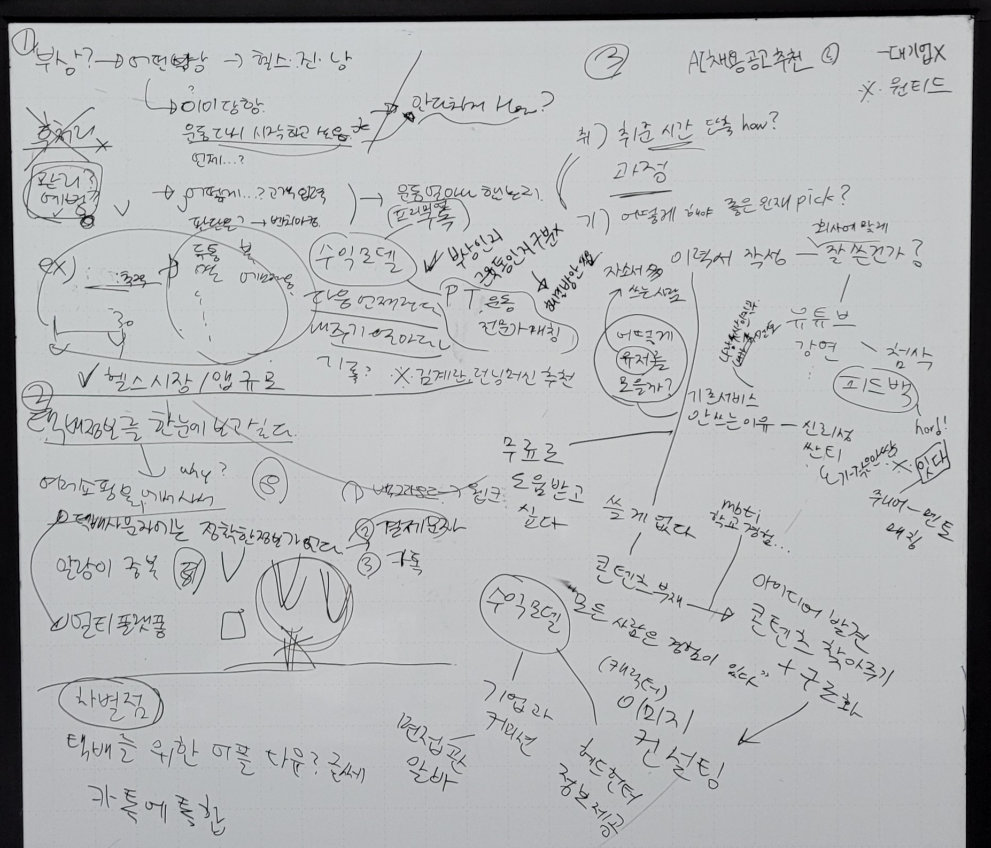 ① 부상? → 어떤 부상 → 헬스·진·낭
→ 이미 당함.
안다치게 How?
운동 다시 시작하고 싶음
언제...?
후처리
관리?
예방?
→ 어떻게...? 고객 입력
판단은? → 벤치마킹
→ 운동 얼마나 했는지.
프리미엄
ex)
수익모델
✓ 부상인지
근육통인지 구분X
다음 언제 뛴다
PT, 운동
전문가 매칭
기록?
※ 김계란, 런닝머신 추천
✓ 헬스 시장 / 앱 규모
②
택배정보를 한눈에 보고싶다.
why?
여러 쇼핑몰
택배사 문자에는 정확한 정보가 있다
알람이 중복
멀티플랫폼
① → 링크
② 결제문자
③ 카톡
차별점
택배를 위한 어플 다운? 글쎄
카톡에 통합
③
AI채용공고추천
- 대기업X
※ 원티드
취) 취준 시간 단축 how?
과정
기) 어떻게 해야 좋은 인재 pick?
회사에 맞게
이력서 작성 — 잘 쓴건가?
자소서
쓰는 사람
어떻게
유저를
모을까?
유튜브
강연
첨삭
피드백
how!
기존서비스
안쓰는 이유 — 신뢰성
싼티
있다
주니어 - 멘토
매칭
무료로
도움받고
싶다
쓸 게 없다
mbti
학교 경험...
콘텐츠 부재
아이디어 발견
콘텐츠 찾아주기
+ 구조화
"모든 사람은 경험이 있다"
(캐릭터)
이미지
컨설팅
수익모델
기업과
커미션
면접관
알바
헤드헌터
정보제공